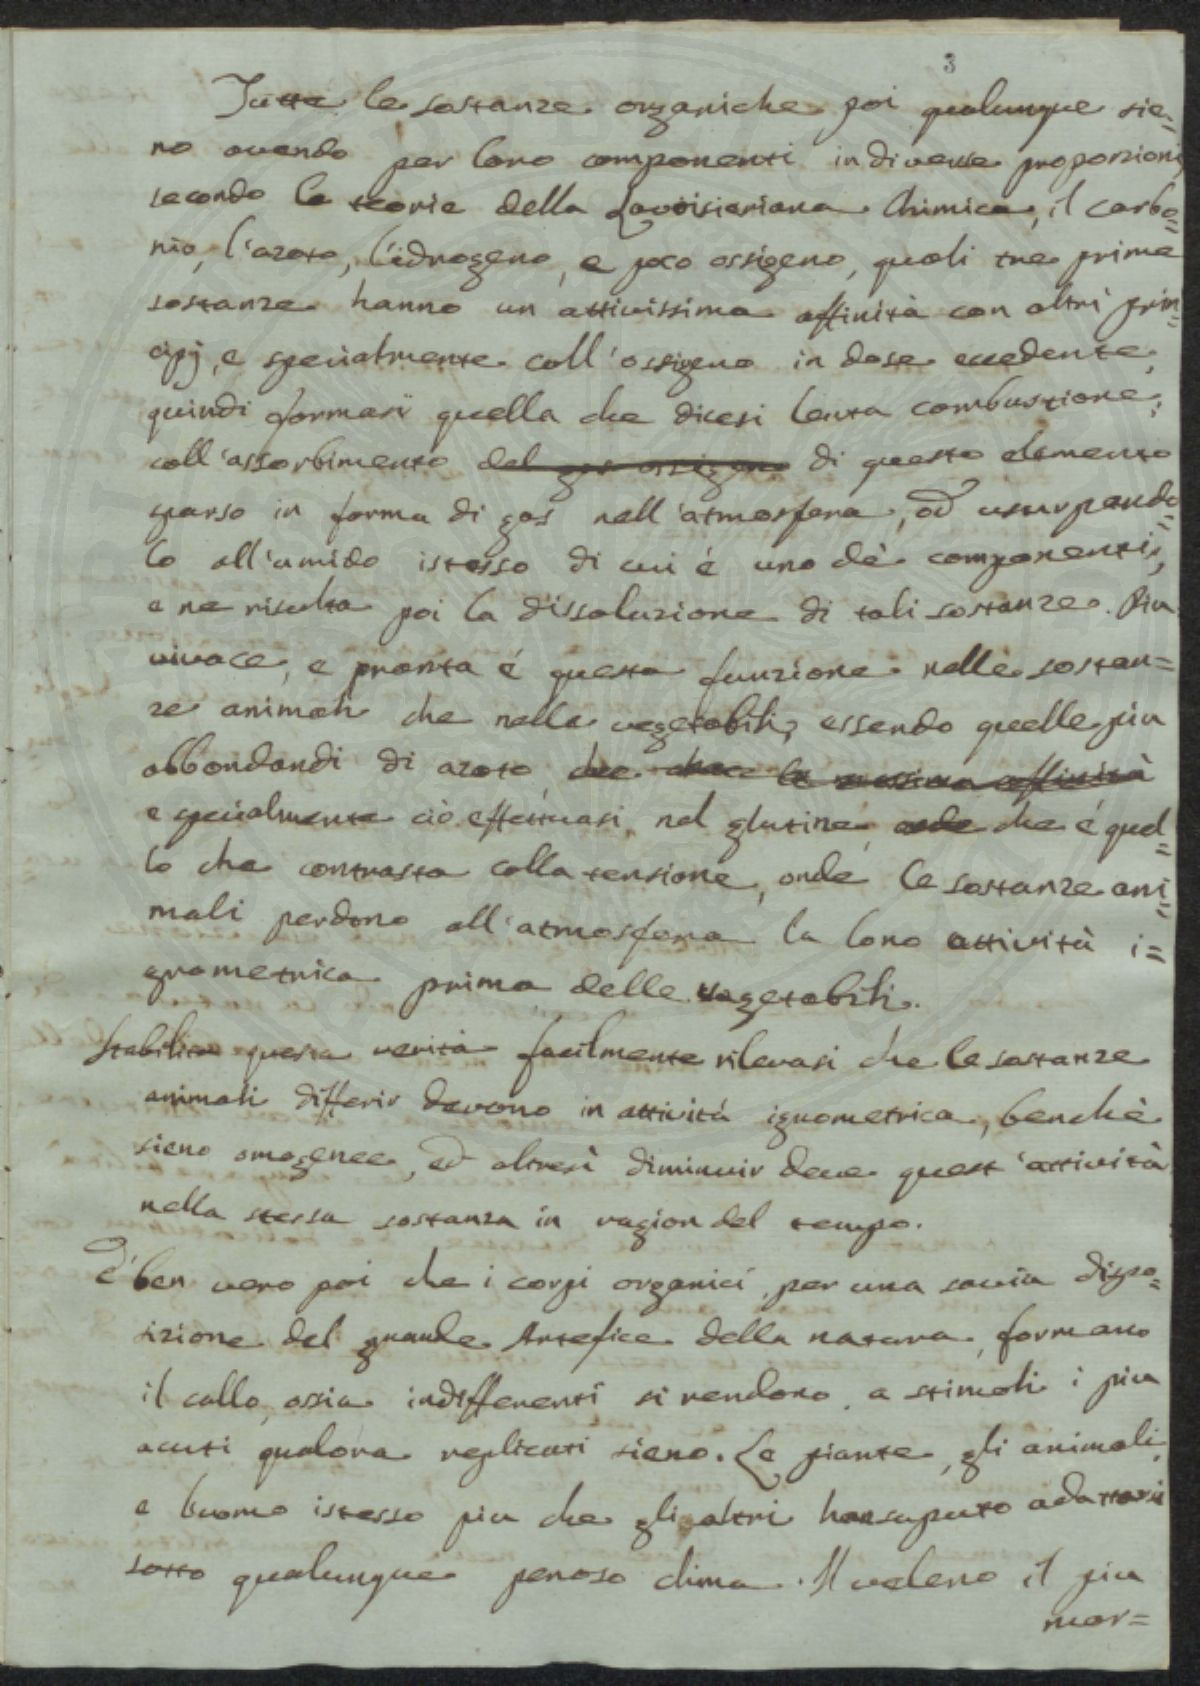 3
Tutte le sostanze organiche poi qualunque sie=
no avendo per loro componenti in diverse proporzioni,
secondo la teoria della Lavoisieriana Chimica, il carbo=
nio, l'azoto, l'idrogeno, e poco ossigeno, quali tre prime
sostanze hanno un attivissima affinità con altri prin=
cipj, e specialmente coll'ossigeno in dose eccedente,
quindi formasi quella che dicesi lenta combustione,
coll'assorbimento del gas ossigeno di questo elemento
sparso in forma di gas nell'atmosfera, od usurpando=
lo all'umido istesso di cui é uno dè componenti,
e ne risulta poi la dissoluzione di tali sostanze. Piu
vivace, e pronta é questa funzione nelle sostan=
ze animali che nelle vegetabili, essendo quelle piu
abbondandi di azoto che ha la massima affinità
e specialmente ciò effettuasi nel glutine, onde che é quel=
lo che contrasta colla tensione, onde le sostanze ani=
mali perdono all'atmosfera la loro attività i=
grometrica prima delle vegetabili.
Stabilita questa verità facilmente rilevasi che le sostanze
animali differir devono in attivitá igrometrica, benchè
sieno omogenee, ed altresì diminuir deve quest'attività
nella stessa sostanza in ragion del tempo.
E' ben vero poi che i corpi organici per una savia dispo=
sizione del grande Artefice della natura, formano
il callo, ossia indifferenti si rendono a stimoli i piu
acuti qualora replicati sieno. Le piante, gli animali,
e l'uomo istesso piu che gli altri han saputo adattarsi
sotto qualunque penoso clima. Il veleno il piu
mor=